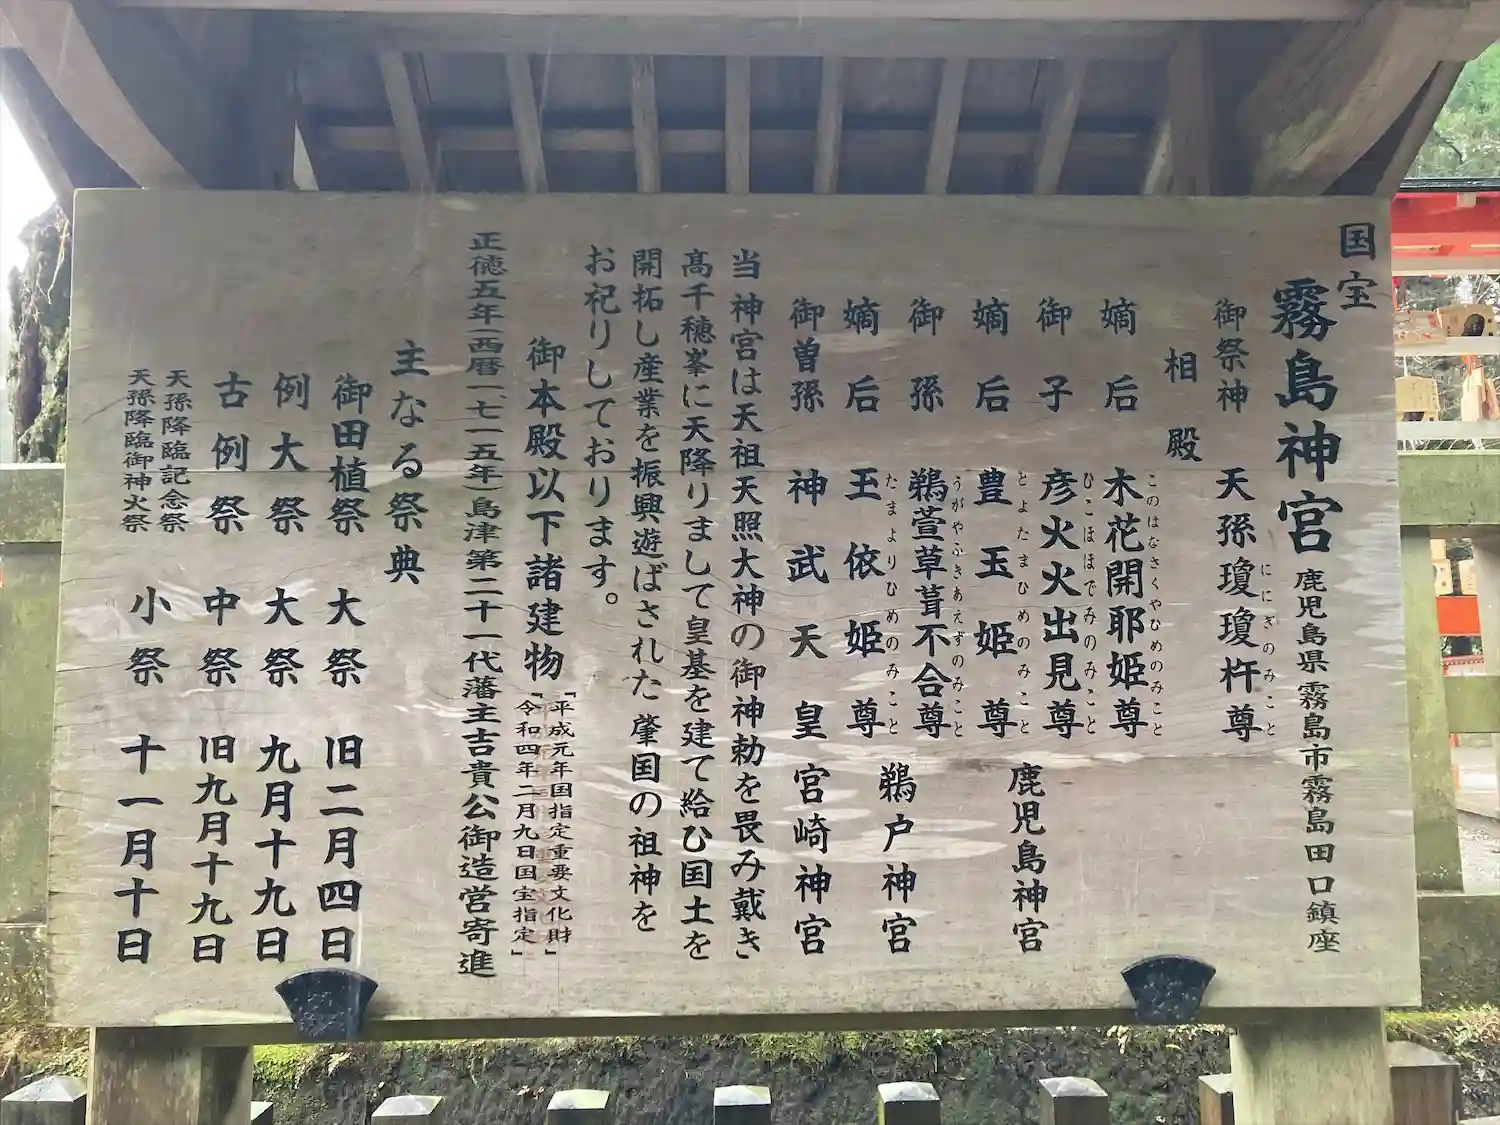 国宝
霧島神宮 鹿児島県霧島市霧島田口鎮座
御祭神 天孫瓊瓊杵尊
ににぎのみこと
相殿
嫡后 木花開耶姫尊
このはなさくやひめのみこと
御子 彦火火出見尊 鹿児島神宮
ひこほほでみのみこと
嫡后 豊玉姫尊
とよたまひめのみこと
御孫 鵜萱草葺不合尊 鵜戸神宮
うがやふきあえずのみこと
嫡后 玉依姫尊
たまよりひめのみこと
御曽孫 神武天皇 宮崎神宮
当神宮は天祖天照大神の御神勅を畏み戴き
高千穂峯に天降りまして皇基を建て給ひ国土を
開拓し産業を振興遊ばされた肇国の祖神を
お祀りしております。
御本殿以下諸建物
「平成元年国指定重要文化財」
「令和四年二月九日国宝指定」
正徳五年(西暦一、七一五年)島津第二十一代藩主吉貴公御造営寄進
主なる祭典
御田植祭 大祭 旧二月四日
例大祭 大祭 九月十九日
古例祭 中祭 旧九月十九日
天孫降臨記念祭
天孫降臨御神火祭 小祭 十一月十日